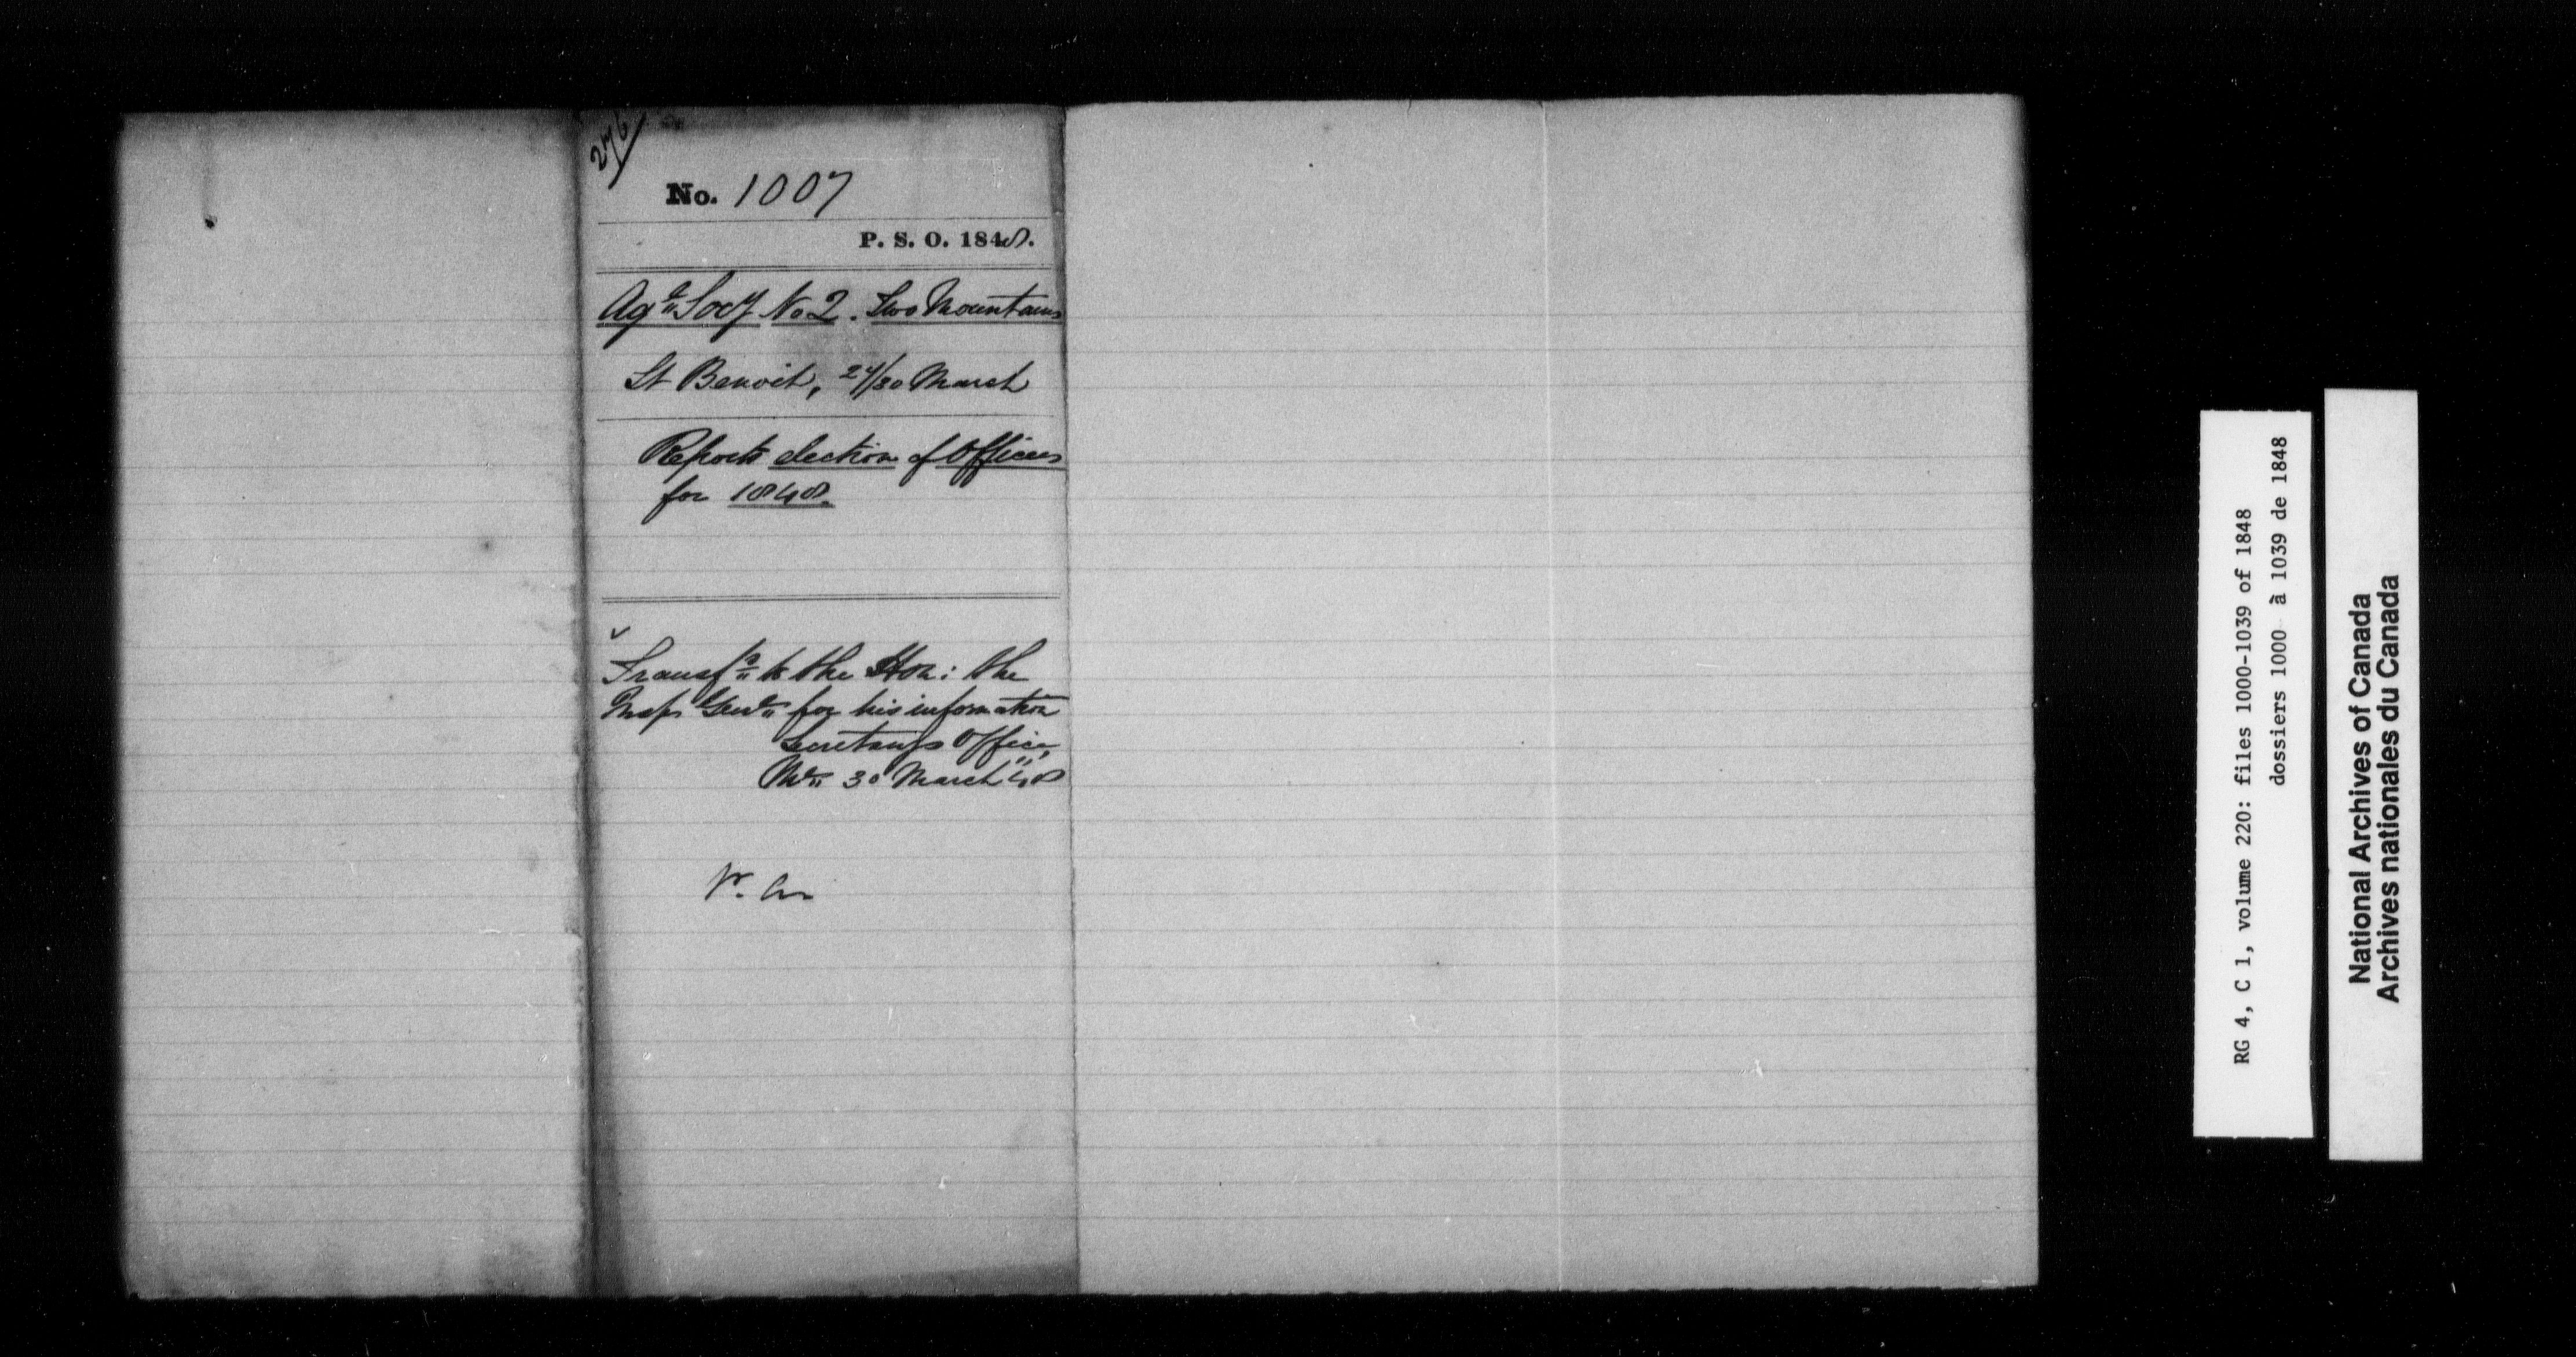 276/
No. 1007
P. S. O. 1848.
Agl Socy No 2. Two Mountains
St Benoit, 24/30 March
Reports election of Officers
for 1848.
Transfd to the Hon: the
Insp Genl for his information
Secretary's Office,
Ml 30 March "48
RG 4, C 1, volume 220: files 1000-1039 of 1848
dossiers 1000 à 1039 de 1848
National Archives of Canada
Archives nationales du Canada